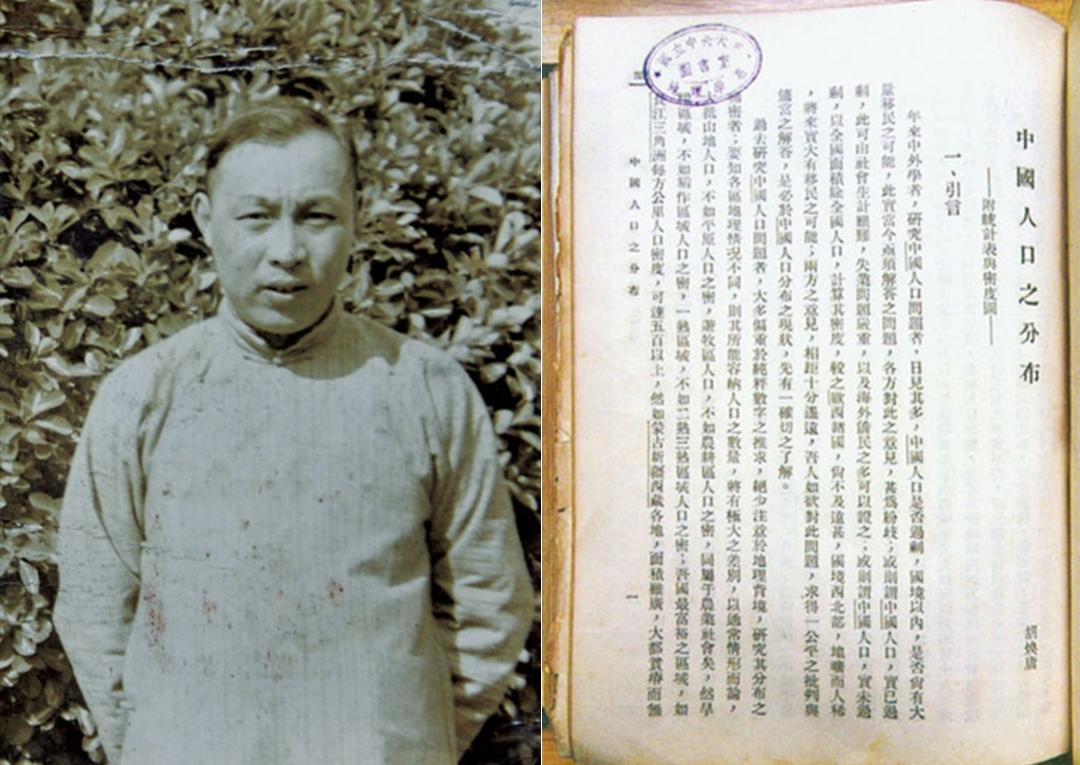 中國人口之分布
——附統計表與密度圖——
胡煥庸
一、引言
年來中外學者，研究中國人口問題者，日見其多，中國人口是否過剩，國境以內，是否尙有大
量移民之可能，此實當今亟須解答之問題，各方對此之意見，甚爲紛歧；或則謂中國人口，實已過
剩，此可由社會生計艱難，失業問題嚴重，以及海外僑民之多可以證之；或則謂中國人口，實未過
剩，以全國面積除全國人口，計算其密度，較之歐西諸國，尙不及遠甚，國境西北部，地曠而人稀
，將來實大有移民之可能；兩方之意見，相距十分遙遠，吾人如欲對此問題，求得一公平之批判與
適當之解答，是必於中國人口分布之現狀，先有一確切之了解。
過去研究中國人口問題者，大多偏重於純粹數字之推求，絕少注意於地理背境，研究其分布之
密者；要知各區地理情況不同，則其所能容納人口之數量，將有極大之差別，以通常情形而論，
山地人口，不如平原人口之密，游牧區人口，不如農耕區人口之密，同屬于農業社會矣，然旱
區域，不如稻作區域人口之密，一熟區域，不如二熟三熟區域人口之密；吾國最富裕之區域，如
江三角洲每方公里人口密度，可達五百以上，然如蒙古新疆西藏各地，面積雖廣，大都貧瘠而無
中國人口之分布
一
圖書室